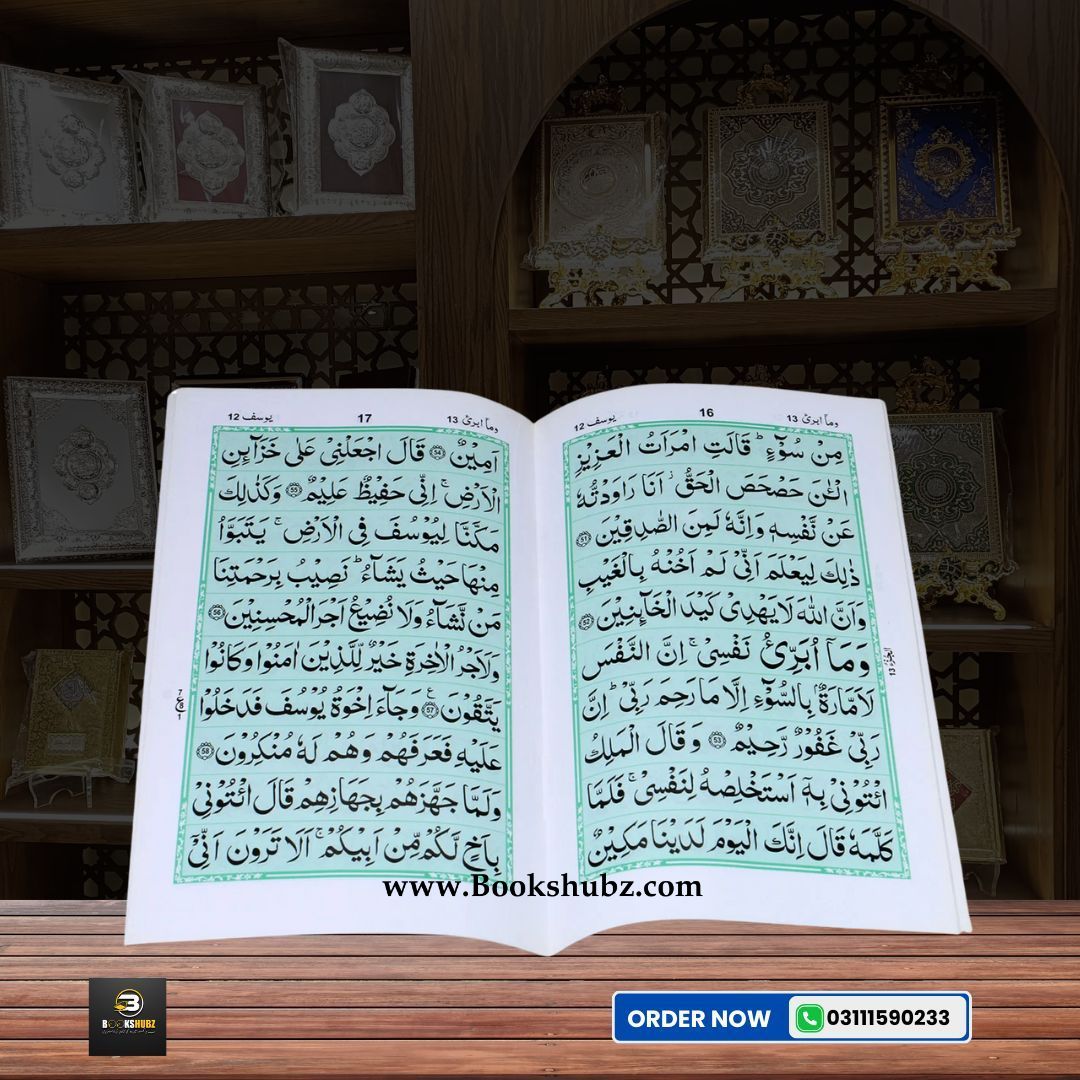 وما ابرئ 13
16
يوسف 12
مِنْ سُوْٓءٍ ؕ قَالَتِ امْرَاَتُ الْعَزِيْزِ
الْـٰٔنَ حَصْحَصَ الْحَقُّ ؗ اَنَا رَاوَدْتُّهٗ
عَنْ نَّفْسِهٖ وَاِنَّهٗ لَمِنَ الصّٰدِقِيْنَ ﴿51﴾
ذٰلِكَ لِيَعْلَمَ اَنِّيْ لَمْ اَخُنْهُ بِالْغَيْبِ
وَاَنَّ اللّٰهَ لَا يَهْدِيْ كَيْدَ الْخَآئِنِيْنَ ﴿52﴾
وَمَآ اُبَرِّئُ نَفْسِيْ ۚ اِنَّ النَّفْسَ
لَاَمَّارَةٌۢ بِالسُّوْٓءِ اِلَّا مَا رَحِمَ رَبِّيْ ؕ اِنَّ
رَبِّيْ غَفُوْرٌ رَّحِيْمٌ ﴿53﴾ وَقَالَ الْمَلِكُ
ائْتُوْنِيْ بِهٖٓ اَسْتَخْلِصْهُ لِنَفْسِيْ ۚ فَلَمَّا
كَلَّمَهٗ قَالَ اِنَّكَ الْيَوْمَ لَدَيْنَا مَكِيْنٌ
الجزء 13
وما ابرئ 13
17
يوسف 12
اَمِيْنٌ ﴿54﴾ قَالَ اجْعَلْنِيْ عَلٰى خَزَآئِنِ
الْاَرْضِ ۚ اِنِّيْ حَفِيْظٌ عَلِيْمٌ ﴿55﴾ وَكَذٰلِكَ
مَكَّنَّا لِيُوْسُفَ فِي الْاَرْضِ ۚ يَتَبَوَّاُ
مِنْهَا حَيْثُ يَشَآءُ ؕ نُصِيْبُ بِرَحْمَتِنَا
مَنْ نَّشَآءُ وَلَا نُضِيْعُ اَجْرَ الْمُحْسِنِيْنَ ﴿56﴾
وَلَاَجْرُ الْاٰخِرَةِ خَيْرٌ لِّلَّذِيْنَ اٰمَنُوْا وَكَانُوْا
يَتَّقُوْنَ ﴿57﴾ وَجَآءَ اِخْوَةُ يُوْسُفَ فَدَخَلُوْا
عَلَيْهِ فَعَرَفَهُمْ وَهُمْ لَهٗ مُنْكِرُوْنَ ﴿58﴾
وَلَمَّا جَهَّزَهُمْ بِجَهَازِهِمْ قَالَ ائْتُوْنِيْ
بِاَخٍ لَّكُمْ مِّنْ اَبِيْكُمْ ۚ اَلَا تَرَوْنَ اَنِّيْٓ
7
ع
8
1
www.Bookshubz.com
B
BOOKSHUBZ
ORDER NOW 03111590233